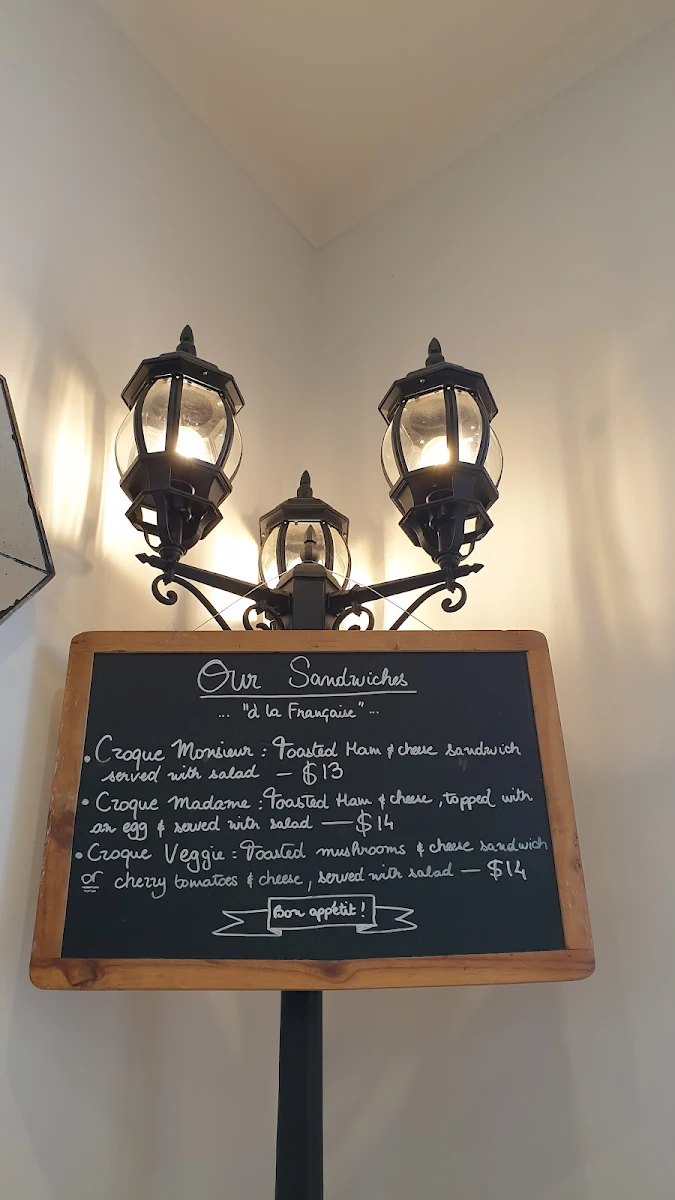 Our Sandwiches
... "à la Française" ...
• Croque Monsieur : Toasted Ham & cheese sandwich
served with salad - $13
• Croque Madame : Toasted Ham & cheese, topped with
an egg & served with salad — $14
• Croque Veggie : Toasted mushrooms & cheese sandwich
or cherry tomatoes & cheese, served with salad - $14
Bon appétit !